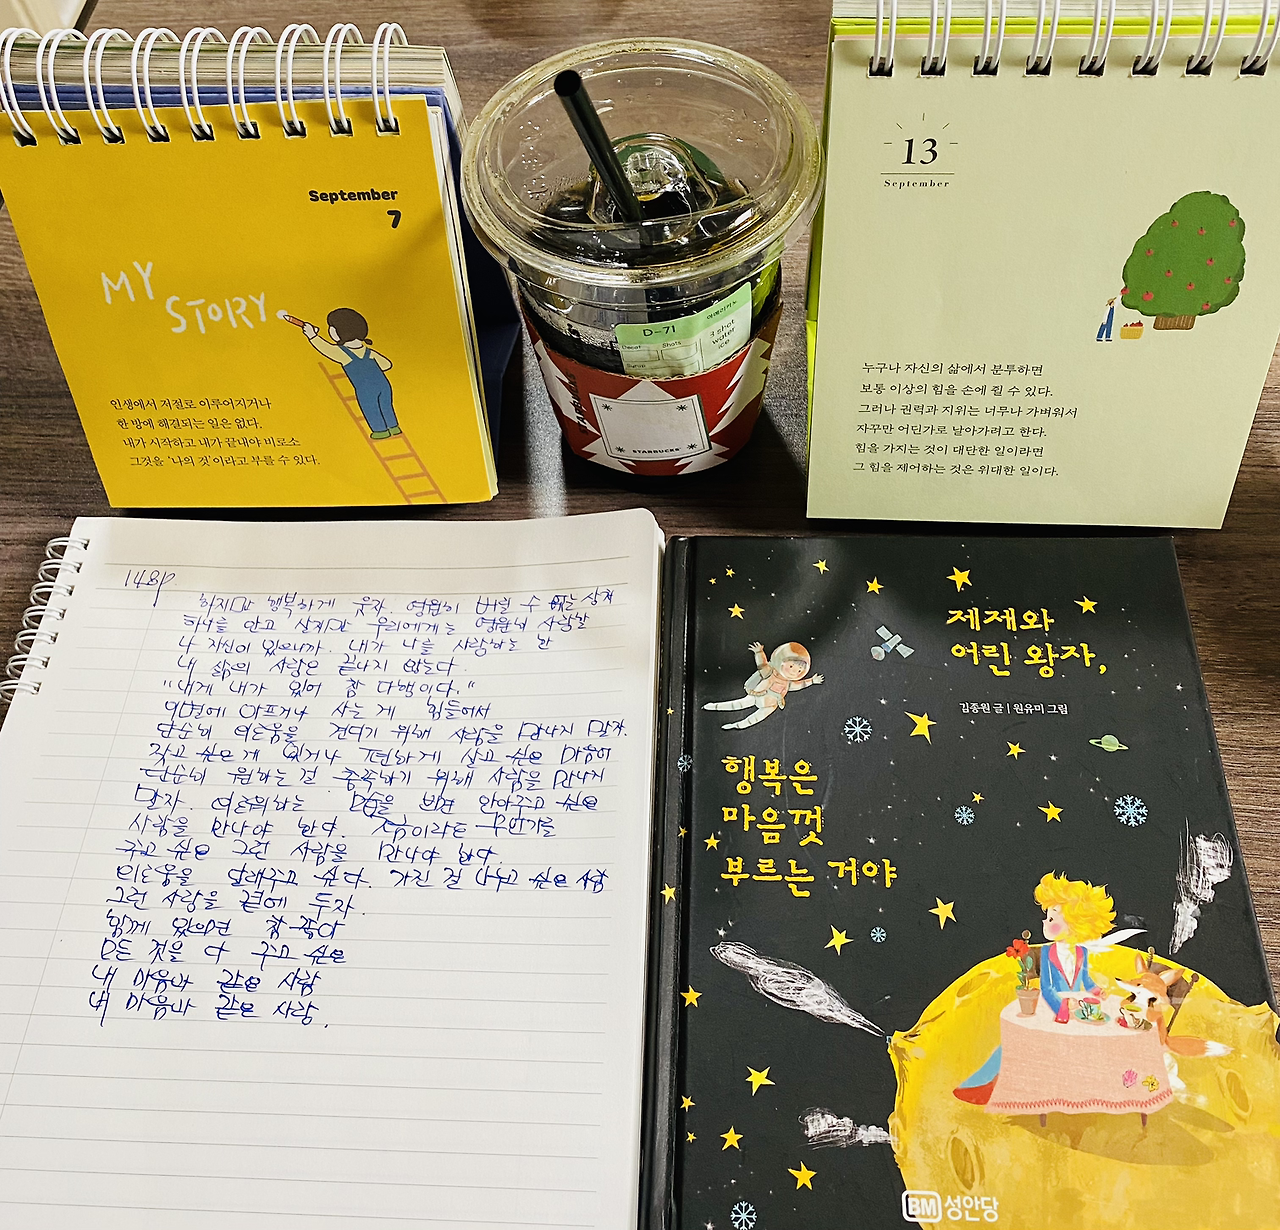 September
7
MY
STORY
인생에서 저절로 이루어지거나
한 방에 해결되는 일은 없다.
내가 시작하고 내가 끝내야 비로소
그것을 '나의 것'이라고 부를 수 있다.
D-71
아메리카노
Decaf
Shots
3 shot
water
ice
Syrup
STARBUCKS
13
September
누구나 자신의 삶에서 분투하면
보통 이상의 힘을 손에 쥘 수 있다.
그러나 권력과 지위는 너무나 가벼워서
자꾸만 어딘가로 날아가려고 한다.
힘을 가지는 것이 대단한 일이라면
그 힘을 제어하는 것은 위대한 일이다.
148p
하지만 행복하게 웃자. 영원히 버릴 수 없는 상처
하나를 안고 살지만 우리에게는 영원히 사랑할
나 자신이 있으니까. 내가 나를 사랑하는 한
내 삶의 사랑은 끝나지 않는다.
"내게 내가 있어 참 다행이다."
이별에 아프거나 사는 게 힘들어서
단순히 외로움을 견디기 위해 사람을 만나지 말자.
갖고 싶은 게 있거나 편하게 살고 싶은 마음에
단순히 원하는 걸 충족하기 위해 사람을 만나지
말자. 외로워하는 보면 안아주고 싶은
사람을 만나야 한다. 지금이라도 무언가를
주고 싶은 그런 사람을 만나야 한다.
외로움을 달래주고 싶다. 가진 걸 나누고 싶은 사람
그런 사람을 곁에 두자.
함께 있으면 참 좋다
모든 것을 다 주고 싶은
내 마음과 같은 사람
내 마음과 같은 사람.
제제와
어린 왕자,
김종원 글 | 원유미 그림
행복은
마음껏
부르는 거야
BM 성안당